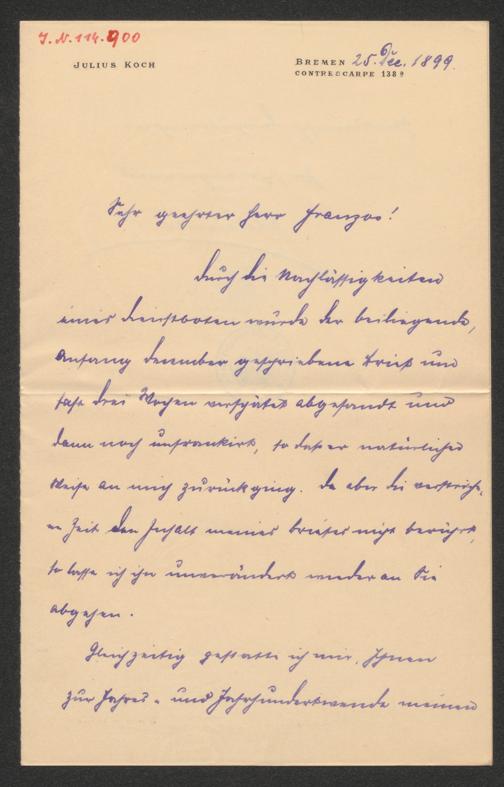 J.N. 114.900
JULIUS KOCH
BREMEN 25. Dec. 1899.
CONTRESCARPE 138
Sehr geehrter Herr Franzos!
durch die Nachlässigkeiten
eines Dienstboten wurde der beiliegende,
Anfang December geschriebene Brief um
fast drei Wochen verspätet abgesandt und
dann noch unfrankirt, so daß er natürlicher
Weise an mich zurückging. Da aber die verstriche-
ne Zeit den Inhalt meines Briefes nicht berührt,
so lasse ich ihn unverändert wieder an Sie
abgehen.
Gleichzeitig gestatte ich mir, Ihnen
zur Jahres- und Jahrhundertwende meinen